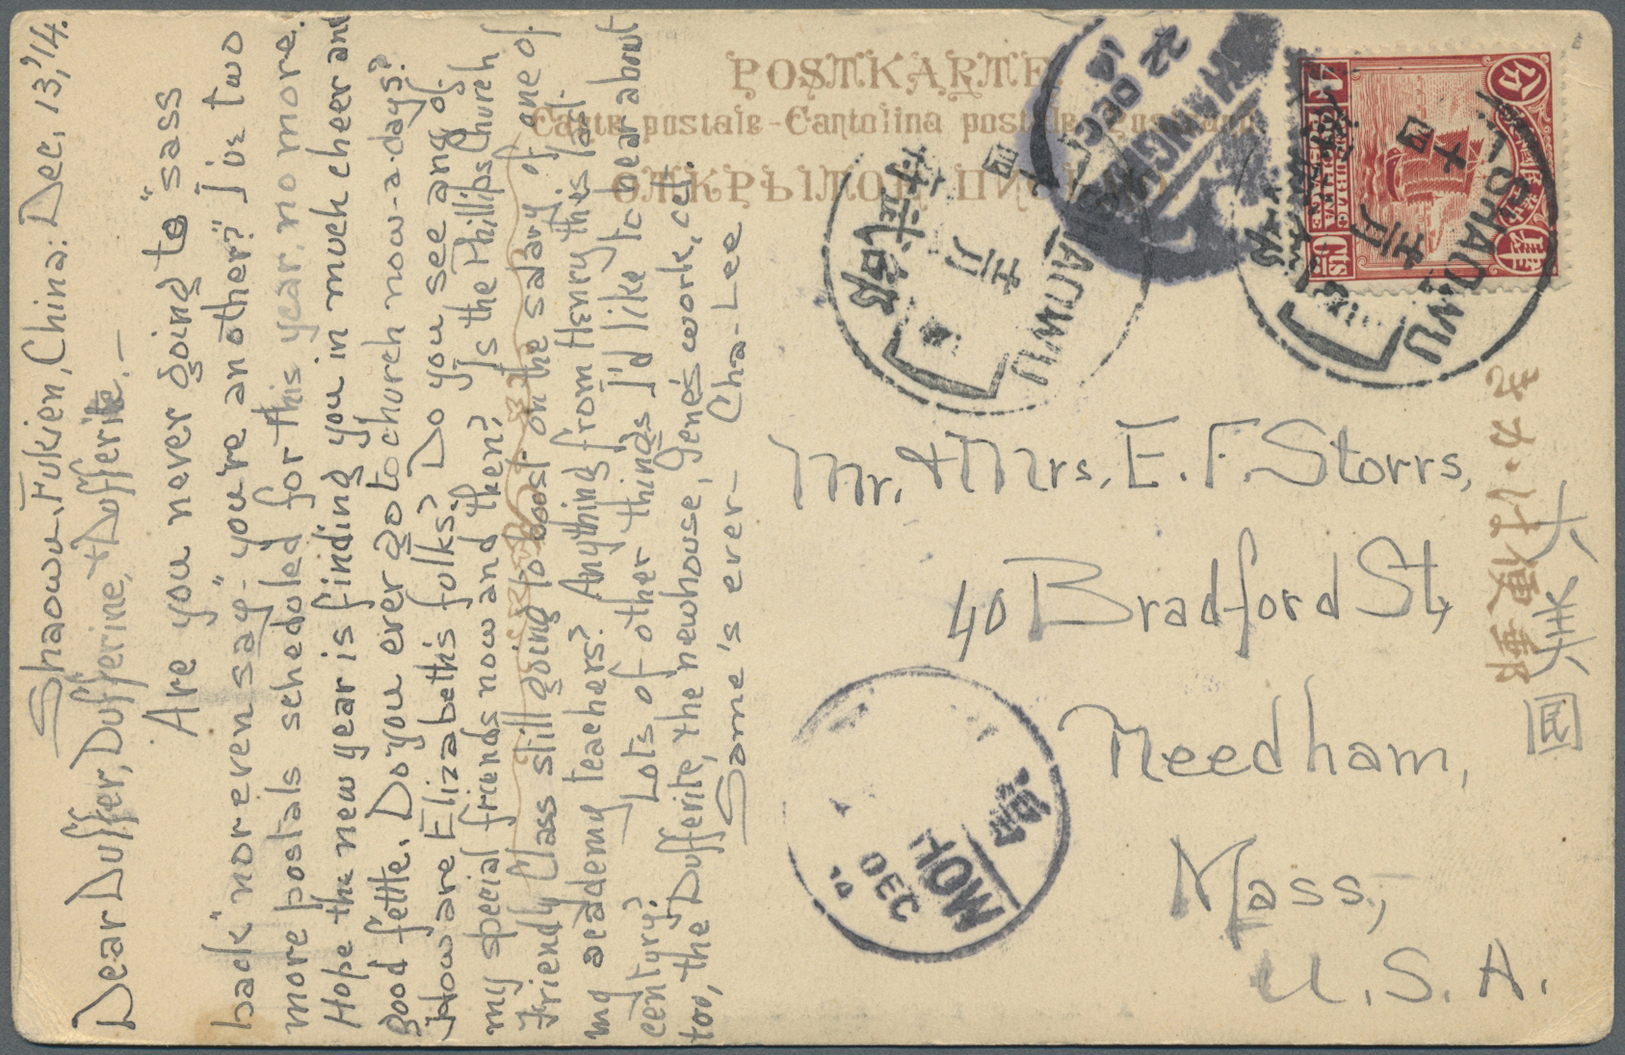 Shaowu, Fukien, China: Dec. 13, '14.
Dear Duffer, Dufferine, + Dufferite, —
Are you never going to "sass
back" nor even say "you're another?" Just two
more postals scheduled for this year, no more.
Hope the new year is finding you in much cheer and
good fettle. Do you ever go to church now-a-days?
How are Elizabeth's folks? Do you see any of
my special friends now and then? Is the Phillips Church
Friendly Class still going to boost on the salary of one of
my academy teachers? Anything from Henry this last
century? Lots of other things I'd like to hear about
too, the Dufferite, the new house, Gene's work, cet.
Same's ever— Cha-Lee
POSTKARTE
Carte postale - Cantolina
SHANGHAI
22 DEC
14
SHAOWU
SHAOWU
邵武
十二月
4
分
CTS
Mr. + Mrs. E. F. Storrs,
40 Bradford St,
Needham,
Mass,
U.S.A.
大美國
FOOCHOW
DEC
14
福州